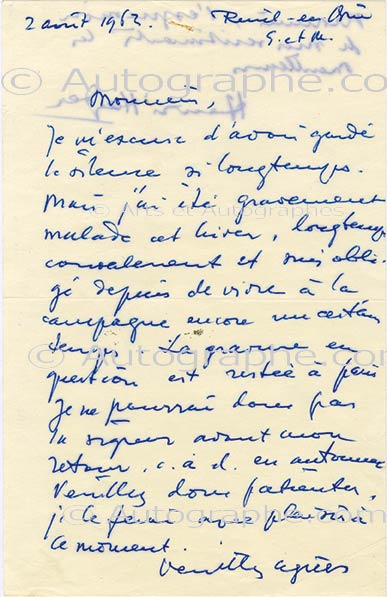 2 août 1962. Reuil-en-Brie
S. et M.
Monsieur,
Je m'excuse d'avoir gardé
le silence si longtemps.
Mais j'ai été gravement
malade cet hiver, longtemps
convalescent et suis obli-
gé depuis de vivre à la
campagne encore un certain
temps. La gravure en
question est restée à Paris
Je ne pourrai donc pas
la signer avant mon
retour. c. à d. en automne
Veuillez donc patienter,
je le ferai avec plaisir à
ce moment.
Veuillez agréer
© Autographe.com
© Arts et Autographes
© Autographe.com
© Autographe.com